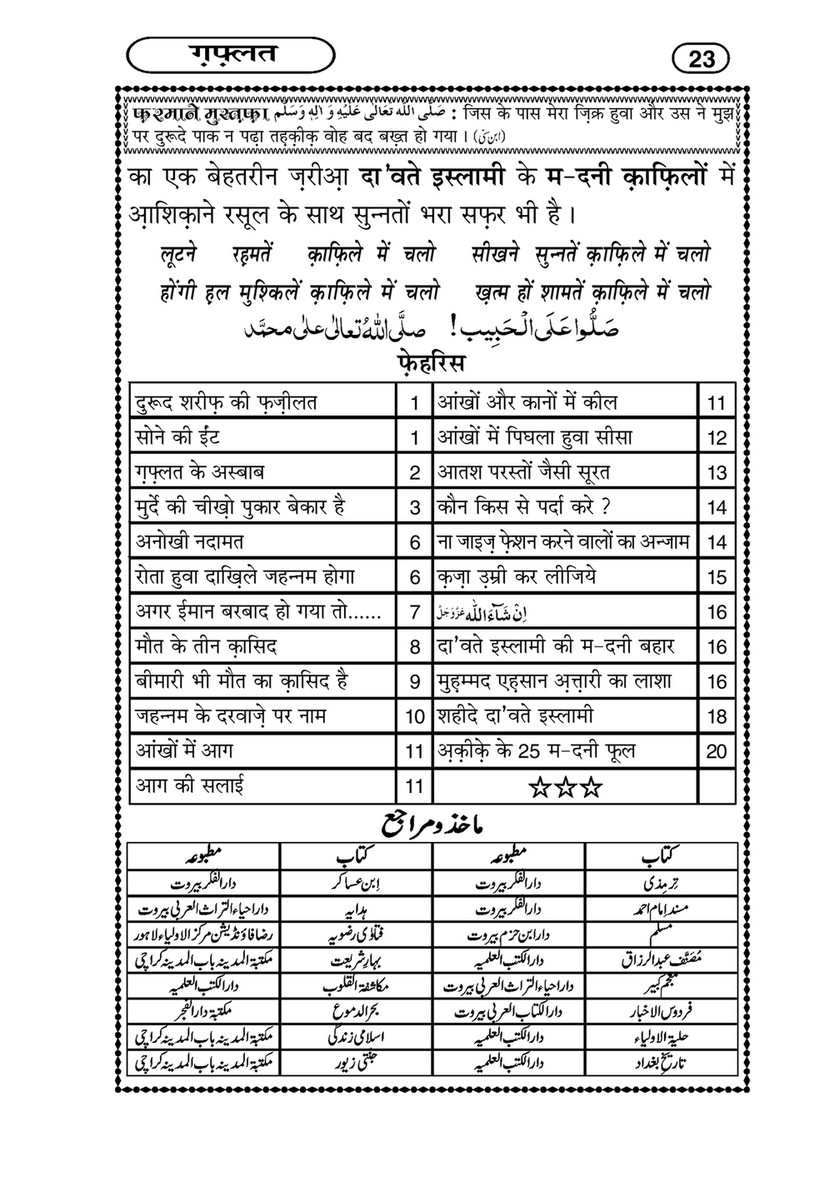 ग़फ़्लत
23
फ़रमाने मुस्तफ़ा صَلَّى اللهُ تَعَالٰى عَلَيْهِ وَ اٰلِهٖ وَسَلَّم : जिस के पास मेरा ज़िक्र हुवा और उस ने मुझ
पर दुरूदे पाक न पढ़ा तह़क़ीक़ वोह बद बख़्त हो गया । (ابن سنی)
का एक बेहतरीन ज़रीआ़ दा'वते इस्लामी के म-दनी क़ाफ़िलों में
आ़शिक़ाने रसूल के साथ सुन्नतों भरा सफ़र भी है ।
लूटने रह़मतें क़ाफ़िले में चलो सीखने सुन्नतें क़ाफ़िले में चलो
होंगी ह़ल मुश्किलें क़ाफ़िले में चलो ख़त्म हों शामतें क़ाफ़िले में चलो
صَلُّوا عَلَى الْحَبِيب! صلَّى اللهُ تعالٰى على محمَّد
फ़ेहरिस
दुरूद शरीफ़ की फ़ज़ीलत 1 आंखों और कानों में कील 11
सोने की ईंट 1 आंखों में पिघला हुवा सीसा 12
ग़फ़्लत के अस्बाब 2 आतश परस्तों जैसी सूरत 13
मुर्दे की चीख़ो पुकार बेकार है 3 कौन किस से पर्दा करे ? 14
अनोखी नदामत 6 ना जाइज़ फ़ेशन करने वालों का अन्जाम 14
रोता हुवा दाख़िले जहन्नम होगा 6 क़ज़ा उ़म्री कर लीजिये 15
अगर ईमान बरबाद हो गया तो...... 7 اِنْ شَآءَ اللّٰه عَزَّوَجَلَّ 16
मौत के तीन क़ासिद 8 दा'वते इस्लामी की म-दनी बहार 16
बीमारी भी मौत का क़ासिद है 9 मुह़म्मद एह़सान अ़त़्त़ारी का लाशा 16
जहन्नम के दरवाज़े पर नाम 10 शहीदे दा'वते इस्लामी 18
आंखों में आग 11 अ़क़ीक़े के 25 म-दनी फूल 20
आग की सलाई 11 ☆☆☆
ماخذ و مراجع
کتاب مطبوعہ کتاب مطبوعہ
ترمذی دارالفکر بیروت ابن عساکر دارالفکر بیروت
مسند امام احمد دارالفکر بیروت ہدایہ داراحیاء التراث العربی بیروت
مسلم دارابن حزم بیروت فتاوٰی رضویہ رضا فاؤنڈیشن مرکز الاولیاء لاہور
مُصَنَّف عبدالرزاق دارالکتب العلمیہ بہارِ شریعت مکتبۃ المدینہ باب المدینہ کراچی
معجم کبیر داراحیاء التراث العربی بیروت مکاشفۃ القلوب دارالکتب العلمیہ
فردوس الاخبار دارالکتاب العربی بیروت بحر الدموع مکتبۃ دارالفجر
حلیۃ الاولیاء دارالکتب العلمیہ اسلامی زندگی مکتبۃ المدینہ باب المدینہ کراچی
تاریخ بغداد دارالکتب العلمیہ جنتی زیور مکتبۃ المدینہ باب المدینہ کراچی